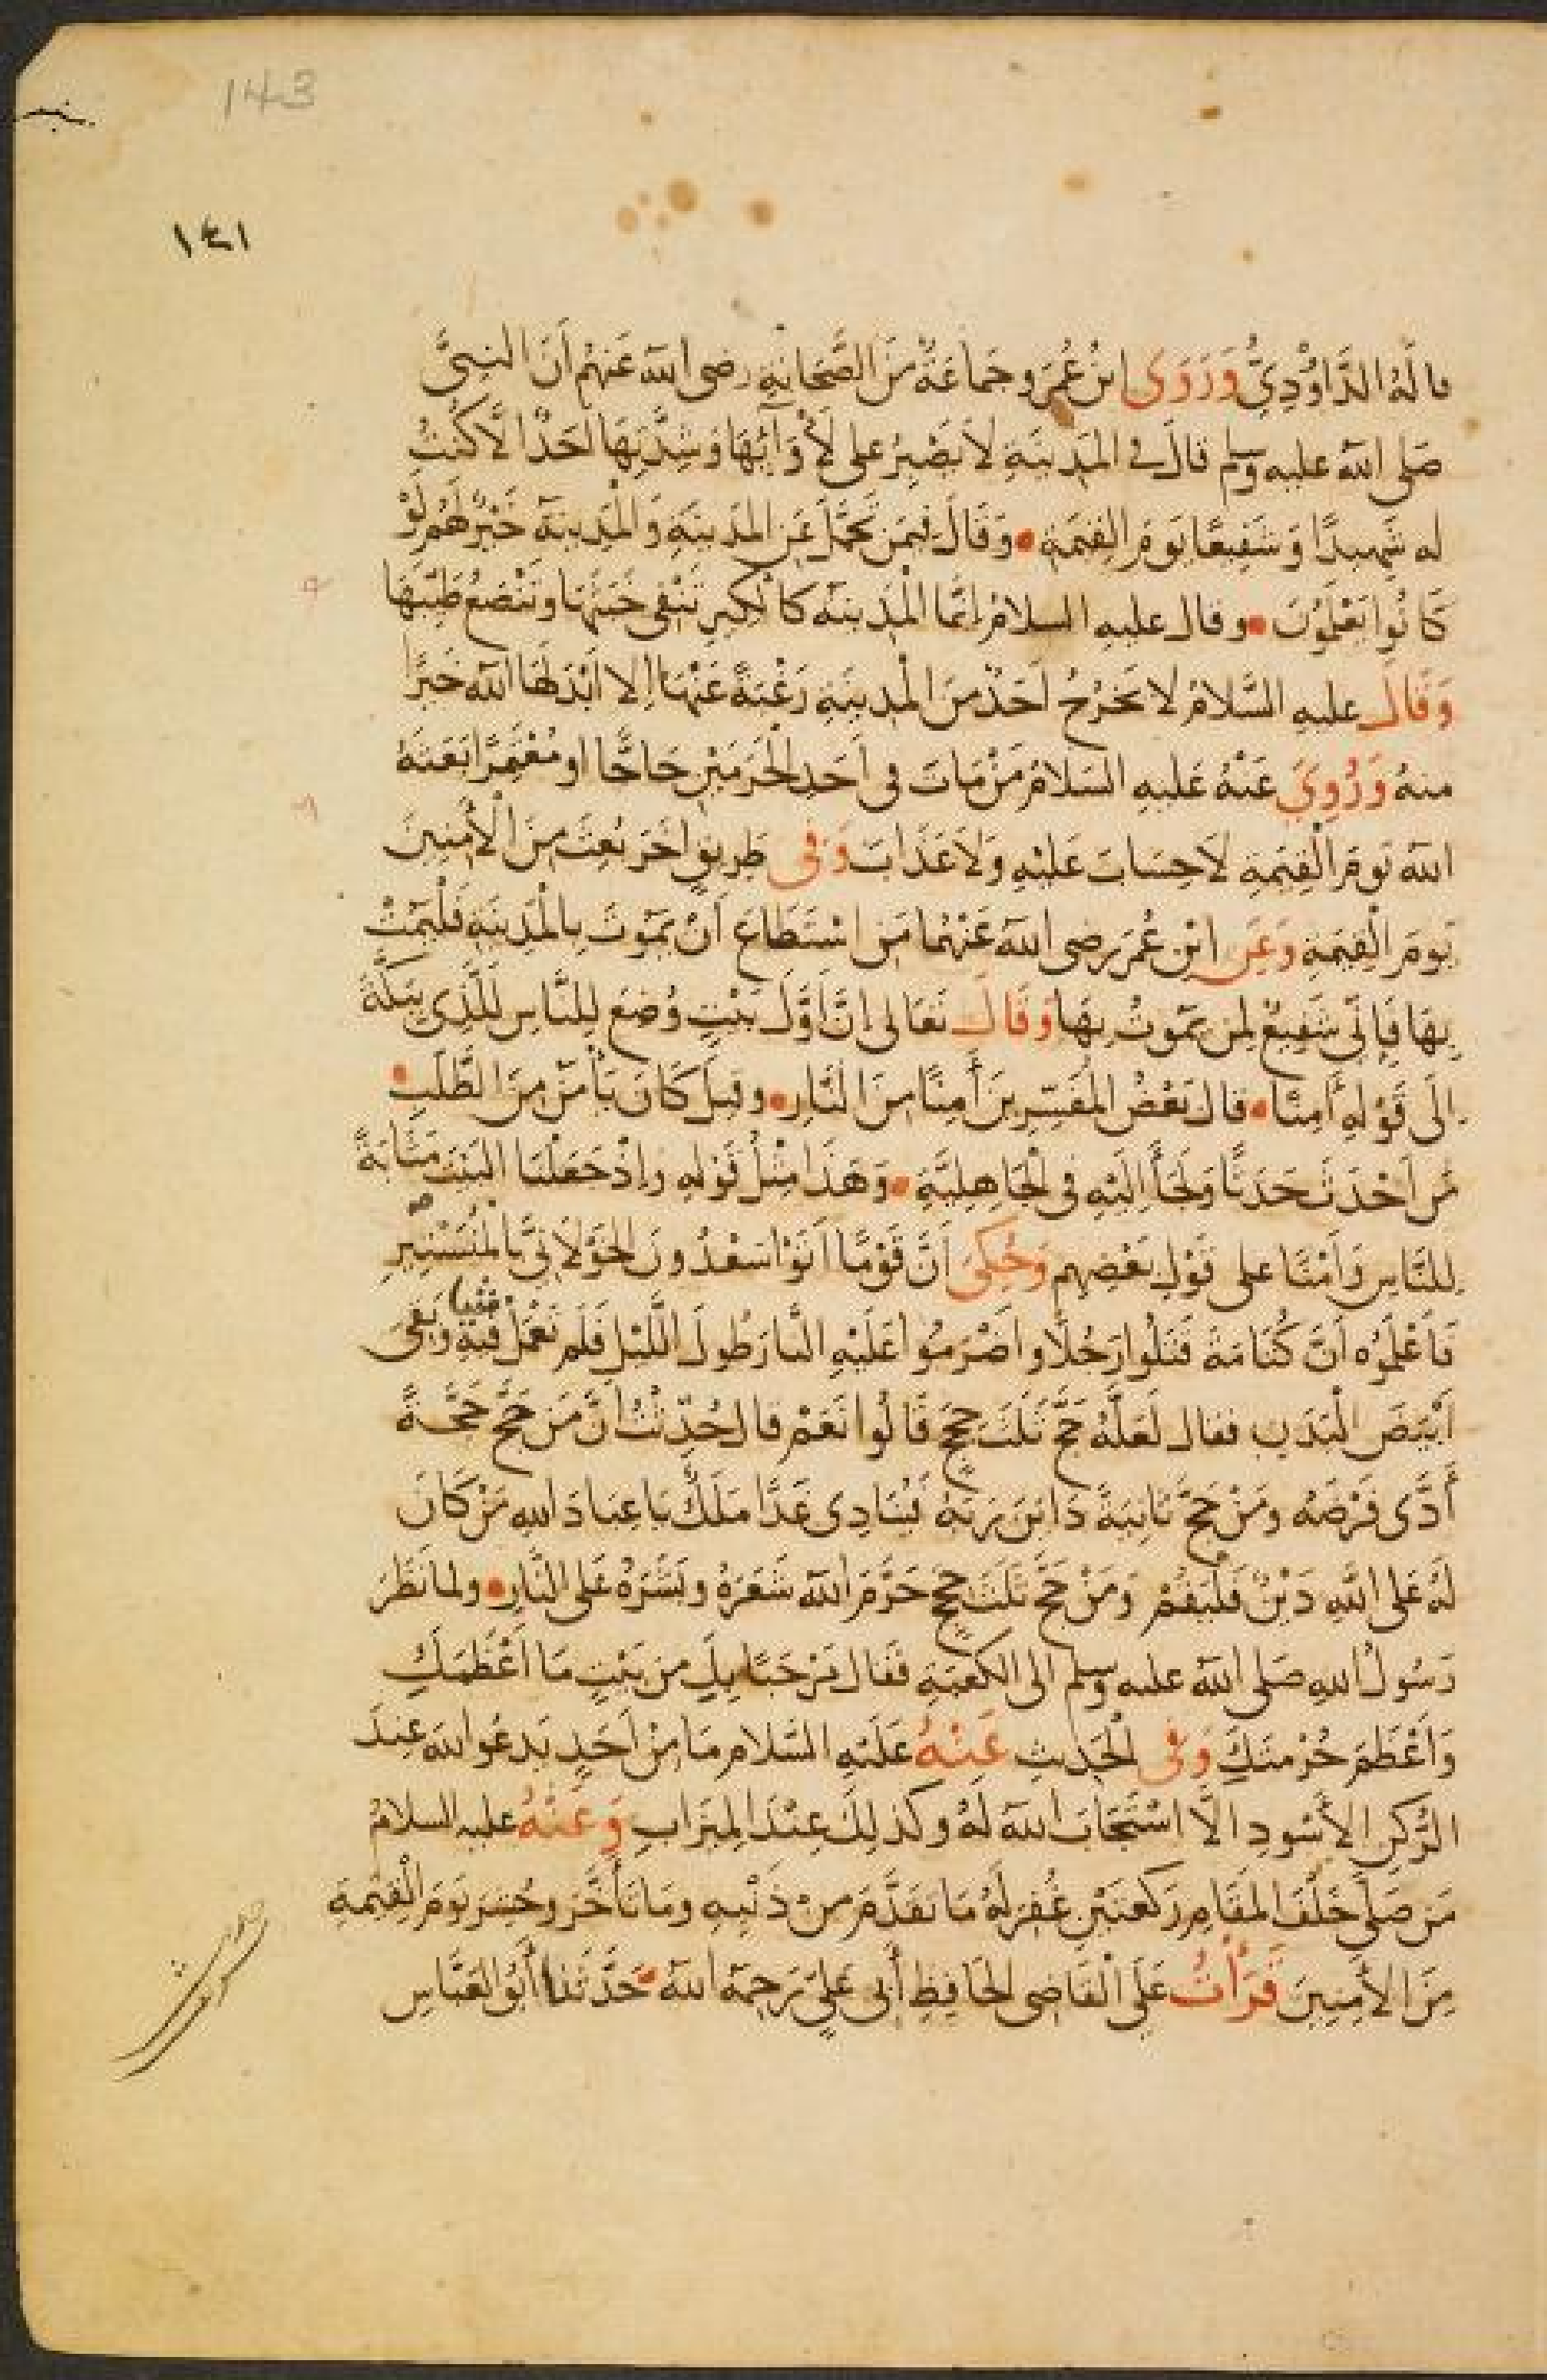 143
١٤١
قالَهُ الدَّاوُدِيُّ وَرَوَى ابنُ عُمَرَ وجَماعَةٌ مِنَ الصَّحَابَةِ رضى الله عَنهُم أنَّ النبىَّ
صَلى الله عليه وسلم قالَ فى المَدِينَةِ لاَ يَصْبِرُ على لَأْوَآئِهَا وَشِدَّتِهَا أحَدٌ الاَّ كُنتُ
له شَهِيدًا وَشَفِيعًا يَومَ القِيٰمَةِ • وَقَالَ فِيمَن تَحَمَّلَ عَنِ المَدِينَةِ وَالْمَدِينَة خَيْرٌ لَهُم لَوْ
كَانُوا يَعْلَمُونَ • وقال عليهِ السلامُ إنَّما الْمَدِينَة كالْكِيرِ تَنْفِى خَبَثَهَا وتَنْصَعُ طَيِّبَهَا
وَقَالَ عليهِ السَّلامُ لا يَخرُجُ أحَدٌ مِنَ الْمَدِينَةِ رَغْبَةً عَنْهَا إلا أبْدَلَهَا الله خَيرًا
منهُ وَرُوِيَ عَنْهُ عَليهِ السَلامُ مَنْ مَاتَ فى أحَدِ الْحَرَمَيْنِ حَاجًّا او مُعْتَمِرًا بَعَثَهُ
الله يَومَ القِيٰمَةِ لاَ حِسَابَ عَلَيْهِ وَلاَ عَذَابَ وَفى طَرِيقٍ آخَرَ بُعِثَ مِنَ الْآمِنِينَ
يَومَ الْقِيٰمَةِ وَعَنِ ابْنِ عُمَرَ رضى الله عَنْهُما مَنِ اسْتَطَاعَ أنْ يَمُوتَ بِالْمَدِينَةِ فَلْيَمُتْ
بِهَا فَإنِّى شَفِيعٌ لِمَن يَمُوتُ بِهَا وَقَالَ تَعَالى إنَّ أوَّلَ بَيْتٍ وُضِعَ لِلنَّاسِ لَلَّذِى بِبَكَّةَ
إلَى قَوْلِهِ آمِنًا • قال بَعْضُ المُفَسِّرِينَ أمِنًا مِنَ النَّارِ • وقِيلَ كَانَ يَأْمَنُ مِنَ الطَّلَبِ •
مَن أحْدَثَ حَدَثًا وَلَجَأَ إلَيْهِ فى الْجَاهِلِيَّةِ • وَهَذَا مِثْلُ قَوْلِهِ وإذْ جَعَلْنَا البَيْتَ مَثَابَةً
لِلنَّاسِ وَأمْنًا على قَوْلِ بَعْضِهِم وَحُكِىَ أنَّ قَوْمًا أتَوْا سَعْدُونَ الخَوْلاَنِىَّ بالمُنَسْتِيرِ
فَأَعْلَمُوه أنَّ كُتَامَةَ قَتَلُوا رَجُلًا وأضْرَمُوا عَلَيْهِ النَّارَ طُولَ اللَّيْلِ فَلَم تَعْمَلْ فِيهِ شَيْئًا وَبَقِىَ
أبْيَضَ الْبَدَنِ فقال لَعَلَّهُ حَجَّ ثَلَثَ حِجَجٍ قَالُوا نَعَمْ قال حُدِّثْتُ أنَّ مَنْ حَجَّ حَجَّةً
أدَّى فَرْضَهُ ومَنْ حَجَّ ثَانِيَةً دَايَنَ رَبَّهُ فَيُنَادِى غَدًا مَلَكٌ يَا عِبَادَ اللهِ مَنْ كَانَ
لَهُ عَلى اللهِ دَيْنٌ فَلْيَقُمْ وَمَنْ حَجَّ ثَلَثَ حِجَجٍ حَرَّمَ الله شَعَرَهُ وبَشَرَهُ عَلى النَّارِ • ولما نَظَرَ
رَسُولُ اللهِ صَلى الله عليه وسلم الى الكَعْبَةِ فَقَالَ مَرْحَبًا بِكِ مِن بَيْتٍ مَا أعْظَمَكِ
وَأعْظَمَ حُرْمَتَكِ وَفى الْحَدِيثِ عَنْهُ عَلَيْهِ السَّلام مَا مِنْ أحَدٍ يَدعُو الله عِنْدَ
الرُّكنِ الأسْوَدِ الاَّ اسْتَجَابَ الله لَهُ وكَذلِكَ عِنْدَ المِيزَابِ وَعَنْهُ عليهِ السلامُ
مَن صَلَّى خَلْفَ المَقَامِ رَكعَتَيْنِ غُفِرَ لَهُ مَا تَقَدَّمَ مِنْ ذَنْبِهِ ومَا تَأخَّرَ وحُشِرَ يَومَ الْقِيٰمَةِ
مِنَ الآمِنِينَ قَرَأتُ عَلَى الْقَاضِى الحَافِظِ أبى عَلِىٍّ رَحِمَهُ الله • حَدَّثَنَا أبُو العَبَّاسِ